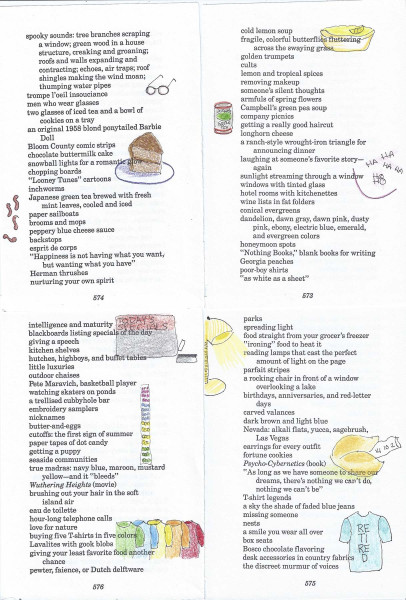 spooky sounds: tree branches scraping
a window; green wood in a house
structure, creaking and groaning;
roofs and walls expanding and
contracting; echoes, air traps; roof
shingles making the wind moan;
thumping water pipes
trompe l'oeil insouciance
men who wear glasses
two glasses of iced tea and a bowl of
cookies on a tray
an original 1958 blond ponytailed Barbie
Doll
Bloom County comic strips
chocolate buttermilk cake
snowball lights for a romantic glow
chopping boards
"Looney Tunes" cartoons
inchworms
Japanese green tea brewed with fresh
mint leaves, cooled and iced
paper sailboats
brooms and mops
peppery blue cheese sauce
backstops
esprit de corps
"Happiness is not having what you want,
but wanting what you have"
Herman thrushes
nurturing your own spirit
574
cold lemon soup
fragile, colorful butterflies fluttering
across the swaying grass
golden trumpets
cults
lemon and tropical spices
removing makeup
someone's silent thoughts
armfuls of spring flowers
Campbell's green pea soup
company picnics
getting a really good haircut
longhorn cheese
a ranch-style wrought-iron triangle for
announcing dinner
laughing at someone's favorite story
again
HA HA
HA HA
HA
HO
sunlight streaming through a window
windows with tinted glass
hotel rooms with kitchenettes
wine lists in fat folders
conical evergreens
dandelion, dawn gray, dawn pink, dusty
pink, ebony, electric blue, emerald,
and evergreen colors
honeymoon spots
"Nothing Books," blank books for writing
Georgia peaches
poor-boy shirts
"as white as a sheet"
573
intelligence and maturity
TODAY'S
SPECIALS
blackboards listing specials of the day
giving a speech
kitchen shelves
hutches, highboys, and buffet tables
little luxuries
outdoor chaises
Pete Maravich, basketball player
watching skaters on ponds
a trellised cubbyhole bar
embroidery samplers
nicknames
butter-and-eggs
cutoffs: the first sign of summer
paper tapes of dot candy
getting a puppy
seaside communities
true madras: navy blue, maroon, mustard
yellow—and it "bleeds"
Wuthering Heights (movie)
brushing out your hair in the soft
island air
eau de toilette
hour-long telephone calls
love for nature
buying five T-shirts in five colors
Lavalites with gook blobs
giving your least favorite food another
chance
pewter, faience, or Dutch delftware
576
parks
spreading light
food straight from your grocer's freezer
"ironing" food to heat it
reading lamps that cast the perfect
amount of light on the page
parfait stripes
a rocking chair in front of a window
overlooking a lake
birthdays, anniversaries, and red-letter
days
carved valances
dark brown and light blue
Nevada: alkali flats, yucca, sagebrush,
Las Vegas
earrings for every outfit
fortune cookies
Psycho-Cybernetics (book)
"As long as we have someone to share our
dreams, there's nothing we can't do,
nothing we can't be"
T-shirt legends
a sky the shade of faded blue jeans
missing someone
nests
a smile you wear all over
box seats
Bosco chocolate flavoring
desk accessories in country fabrics
the discreet murmur of voices
RE
TI
RED
575